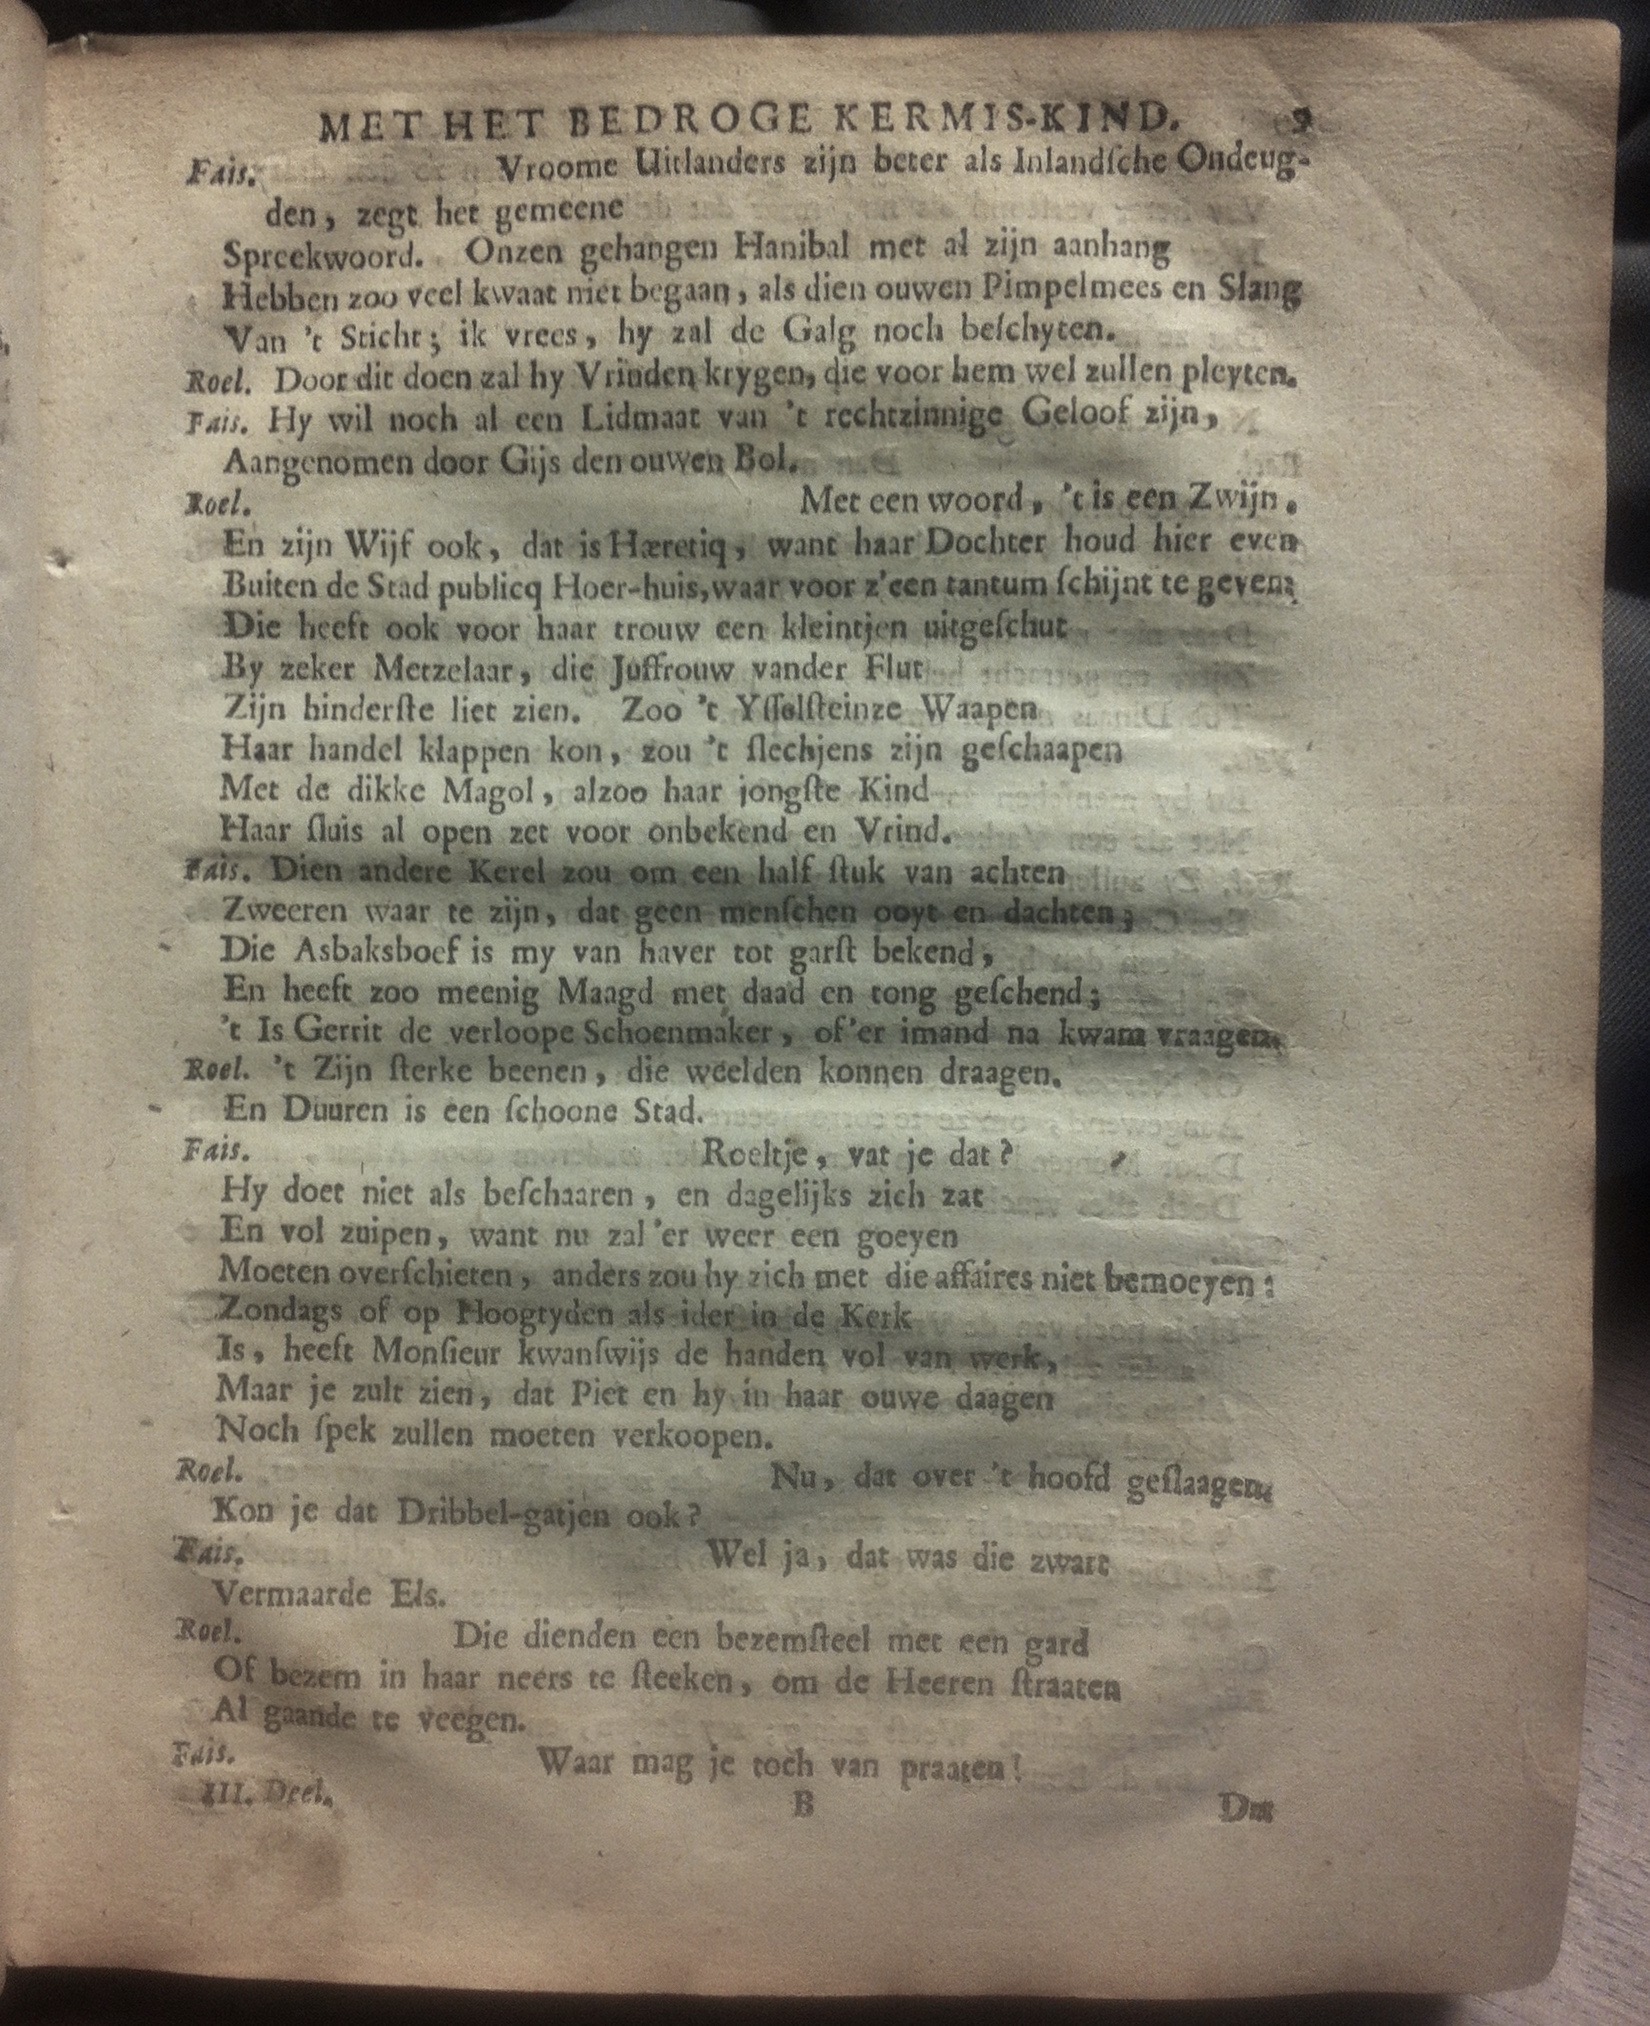 MET HET BEDROGE KERMIS-KIND. 9
Fais. Vroome Uitlanders zijn beter als Inlandſche Ondeug-
den, zegt het gemeene
Spreekwoord. Onzen gehangen Hanibal met al zijn aanhang
Hebben zoo veel kwaat niet begaan, als dien ouwen Pimpelmees en Slang
Van 't Sticht; ik vrees, hy zal de Galg noch beſchyten.
Roel. Door dit doen zal hy Vrinden krygen, die voor hem wel zullen pleyten.
Fais. Hy wil noch al een Lidmaat van 't rechtzinnige Geloof zijn,
Aangenomen door Gijs den ouwen Bol.
Roel. Met een woord, 't is een Zwijn.
En zijn Wijf ook, dat is Hæretiq, want haar Dochter houd hier even
Buiten de Stad publicq Hoer-huis, waar voor z'een tantum ſchijnt te geven;
Die heeft ook voor haar trouw een kleintjen uitgeſchut
By zeker Metzelaar, die Juffrouw vander Flut
Zijn hinderſte liet zien. Zoo 't Yſſelſteinze Waapen
Haar handel klappen kon, zou 't ſlechjens zijn geſchaapen
Met de dikke Magol, alzoo haar jongſte Kind
Haar ſluis al open zet voor onbekend en Vrind.
Fais. Dien andere Kerel zou om een half ſtuk van achten
Zweeren waar te zijn, dat geen menſchen ooyt en dachten;
Die Asbaksboef is my van haver tot garſt bekend,
En heeft zoo meenig Maagd met daad en tong geſchend;
't Is Gerrit de verloope Schoenmaker, of'er imand na kwam vraagen.
Roel. 't Zijn ſterke beenen, die weelden konnen draagen.
En Duuren is een ſchoone Stad.
Fais. Roeltje, vat je dat?
Hy doet niet als beſchaaren, en dagelijks zich zat
En vol zuipen, want nu zal'er weer een goeyen
Moeten overſchieten, anders zou hy zich met die affaires niet bemoeyen:
Zondags of op Hoogtyden als ider in de Kerk
Is, heeft Monſieur kwanſwijs de handen vol van werk,
Maar je zult zien, dat Piet en hy in haar ouwe daagen
Noch ſpek zullen moeten verkoopen.
Roel. Nu, dat over 't hoofd geſlaagen.
Kon je dat Dribbel-gatjen ook?
Fais. Wel ja, dat was die zwart
Vermaarde Els.
Roel. Die dienden een bezemſteel met een gard
Of bezem in haar neers te ſteeken, om de Heeren ſtraaten
Al gaande te veegen.
Fais. Waar mag je toch van praaten!
III. Deel. B